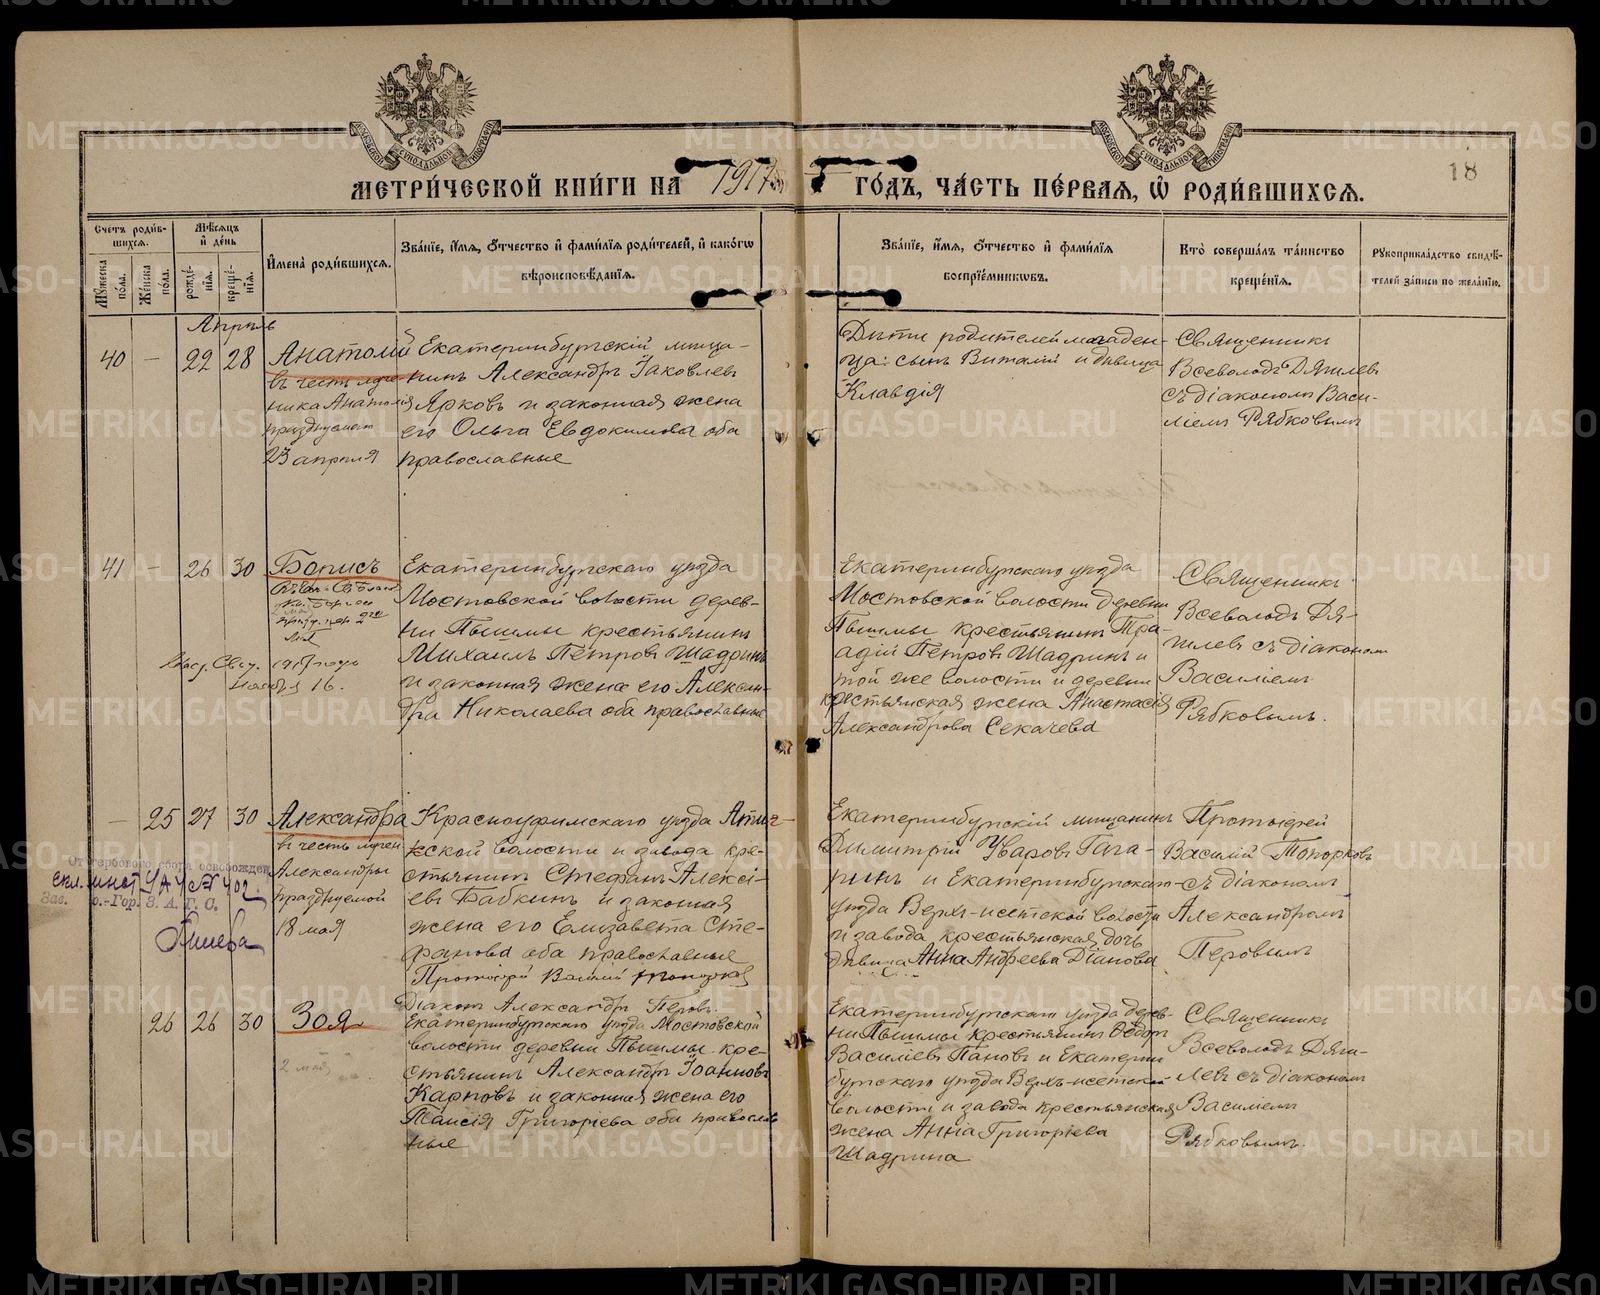 МЕТРИ́ЧЕСКОЙ КНИ́ГИ НА 1917 ГО́ДЪ, ЧА́СТЬ ПЕ́РВАЯ, Ѡ РОДИ́ВШИХСЯ.
18
Счетъ роди́вшихся.
Му́жеска по́ла.
Же́нска по́ла.
Мѣ́сяцъ и де́нь
рожде́нія.
креще́нія.
Имена̀ роди́вшихся.
Зва́ніе, и́мя, о́тчество и фами́лія роди́телей, и како́гѡ
вѣроисповѣ́данія.
Зва́ніе, и́мя, о́тчество и фами́лія
воспріе́мниковъ.
Кто̀ соверша́лъ та́инство
креще́нія.
Рукоприкла́дство свидѣ́-
телей за́писи по жела́нію.
Апрѣль
40 — 22 28
Анатолій
въ честь муче
ника Анатолія
празднуемаго
23 апрѣля
Екатеринбургскій мѣща-
нинъ Александръ Іаковлевъ
Ярковъ и законная жена
его Ольга Евдокимова оба
православные
Дѣти родителей младен-
ца: сынъ Виталій и дѣвица
Клавдія
Священникъ
Всеволодъ Дягилевъ
съ діакономъ Васи-
ліемъ Рябковымъ
41 — 26 30
Борисъ
1917 года
Ноября 16.
Екатеринбургскаго уѣзда
Мостовской волости дерев-
ни Пышмы крестьянинъ
Михаилъ Петровъ Шадринъ
и законная жена его Алексан-
дра Николаева оба православные
Екатеринбургскаго уѣзда
Мостовской волости деревни
Пышмы крестьянинъ
Петровъ Шадринъ и
той же волости и деревни
крестьянская жена Анастасія
Александрова Секачева
Священникъ
Всеволодъ Дя-
гилевъ съ діакономъ
Василіемъ
Рябковымъ.
— 25 27 30
Александра
въ честь мучен
Александры
празднуемой
18 мая
От гербового сбора освобожден
402
Зав. о.-Гор. З. А. Г. С.
Красноуфимскаго уѣзда Атиг-
ской волости и завода кре-
стьянинъ Стефанъ Алексі-
евъ Бабкинъ и законная
жена его Елизавета Сте-
фанова оба православные
Протоіерей Василій Топорковъ
Діаконъ Александръ Перовъ.
Екатеринбургскій мѣщанинъ
Димитрій Уваровъ Гага-
ринъ и Екатеринбургскаго
уѣзда Верхъ-исетской волости
и завода крестьянская дочь
дѣвица Анна Андреева Діанова
Протоіерей
Василій Топорковъ
съ діакономъ
Александромъ
Перовымъ
26 26 30
Зоя
2 май
Екатеринбургскаго уѣзда Мостовской
волости деревни Пышмы кре-
стьянинъ Александръ Іоанновъ
Карповъ и законная жена его
Таисія Григоріева оба православ
ные
Екатеринбургскаго уѣзда дерев-
ни Пышмы крестьянинъ Ѳедоръ
Василіевъ Пановъ и Екатерин
бургскаго уѣзда Верхъ-исетской
волости и завода крестьянская
жена Анна Григоріева
Шадрина
Священникъ
Всеволодъ Дяги-
левъ съ діакономъ
Василіемъ
Рябковымъ.
METRIKI.GASO-URAL.RU